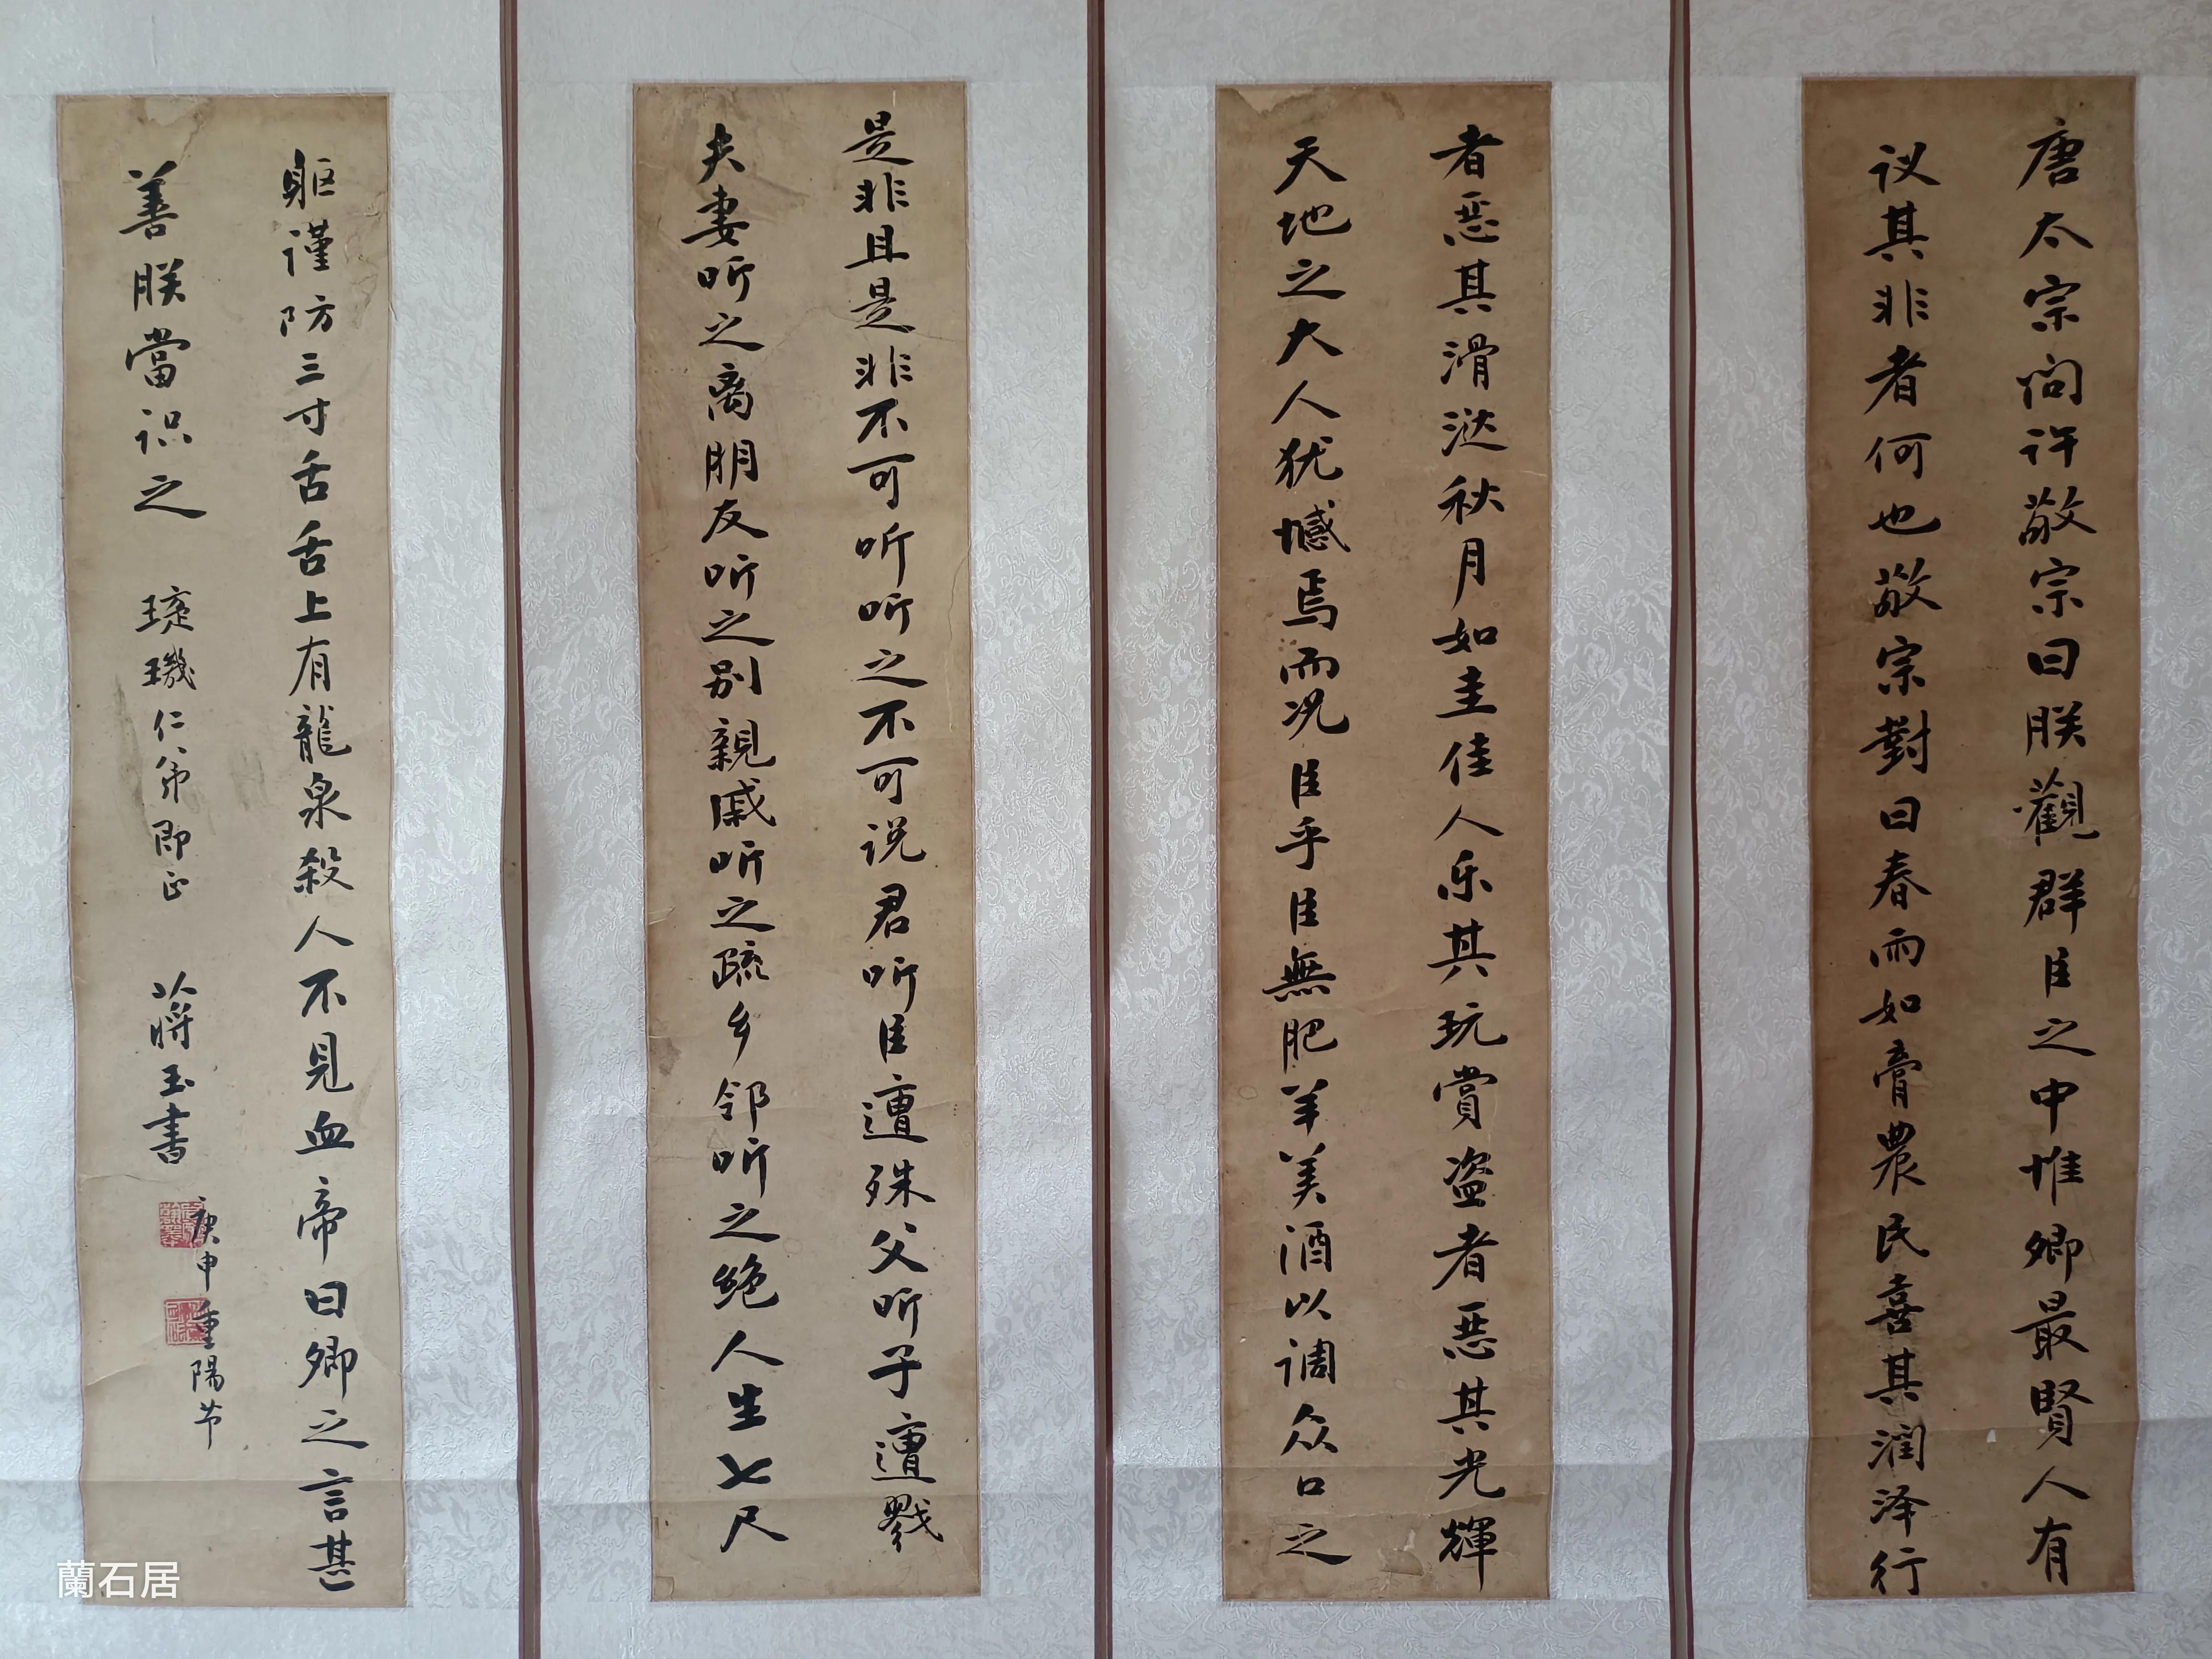 唐太宗问许敬宗曰朕觀群臣之中惟卿最賢人有
议其非者何也敬宗對曰春雨如膏農民喜其润泽行
者恶其滑泷秋月如圭佳人乐其玩赏盗者恶其光輝
天地之大人犹憾焉而况臣乎臣無肥羊美酒以调众口之
是非且是非不可听听之不可说君听臣遭殊父听子遭戮
夫妻听之离朋友听之别親戚听之疏乡邻听之绝人生七尺
躯谨防三寸舌舌上有龍泉殺人不見血帝曰卿之言甚
善朕當识之
璇璣仁弟即正
蔣玉書
庚申重陽节
蘭石居